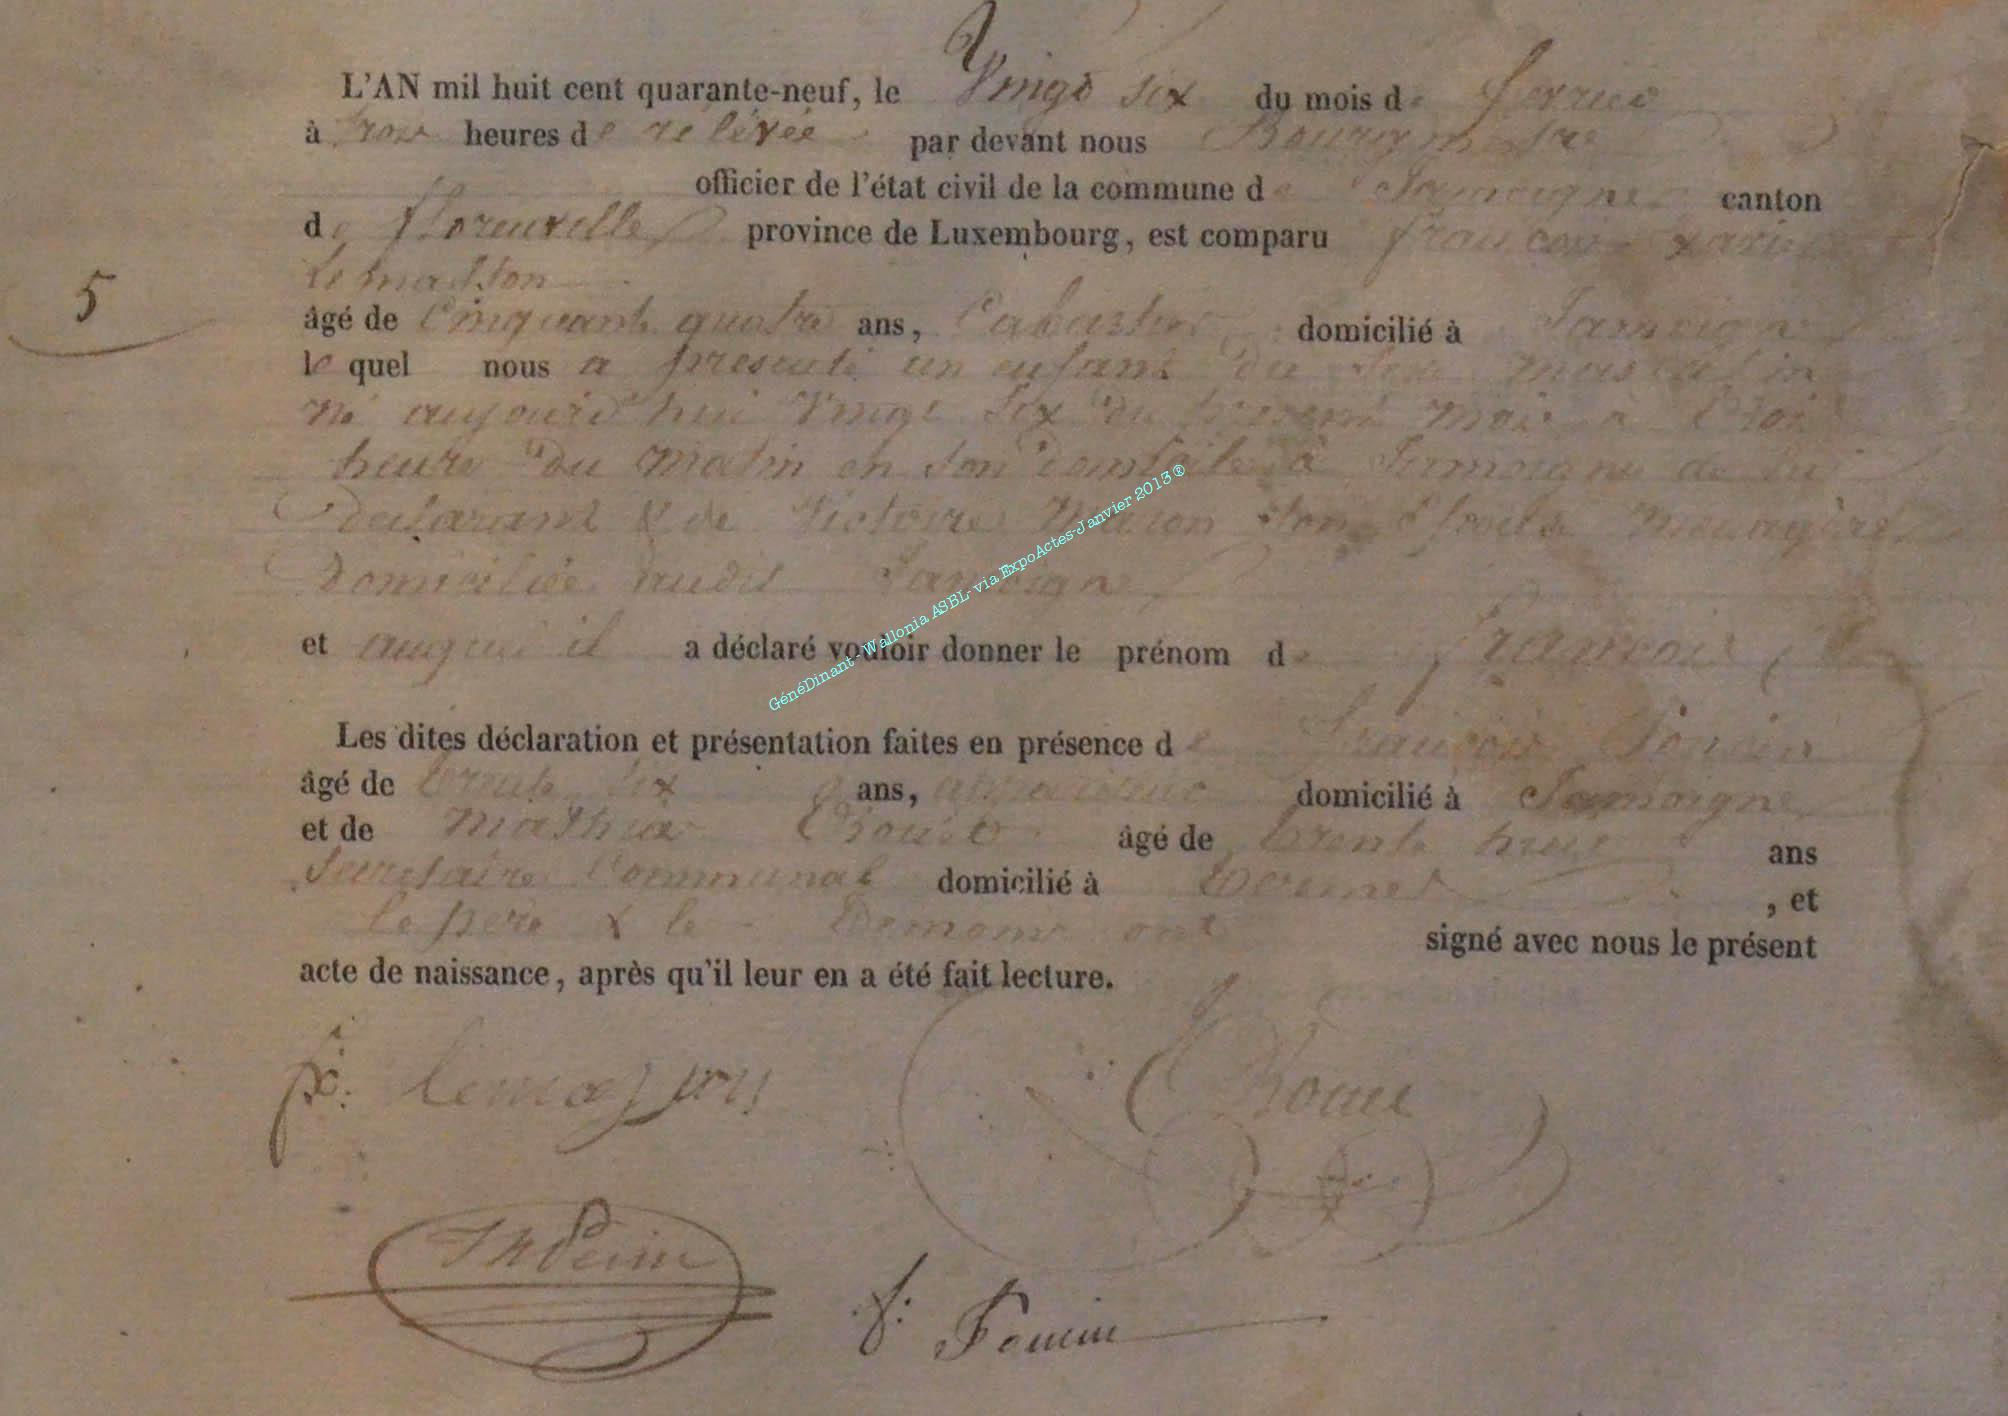 L'AN mil huit cent quarante-neuf, le Vingt six du mois de fevrier
à trois heures de rélévée par devant nous Bourgmestre
officier de l'état civil de la commune de Jamoigne canton
de florenville province de Luxembourg, est comparu françois xavier
Lemasson
5
âgé de Cinquante quatre ans, Cabartier domicilié à Jamoigne
le quel nous a presenté un enfant du sexe masculin
né aujourd'hui Vingt Six du présent mois à trois
heure du matin en son domicile à Jamoigne de lui
declarant & de Victoire son Epouse menagère
domiciliée audit Jamoigne
et auquel il a déclaré vouloir donner le prénom de françois
Les dites déclaration et présentation faites en présence de françois Poncin
âgé de trente six ans, domicilié à Jamoigne
et de Mathias âgé de trente huit ans
Secretaire Communal domicilié à , et
le père & le temoins ont signé avec nous le présent
acte de naissance, après qu'il leur en a été fait lecture.
fx: lemasson
f: Poncin
GénéDinant - Wallonia ASBL- via ExpoActes-Janvier 2013®